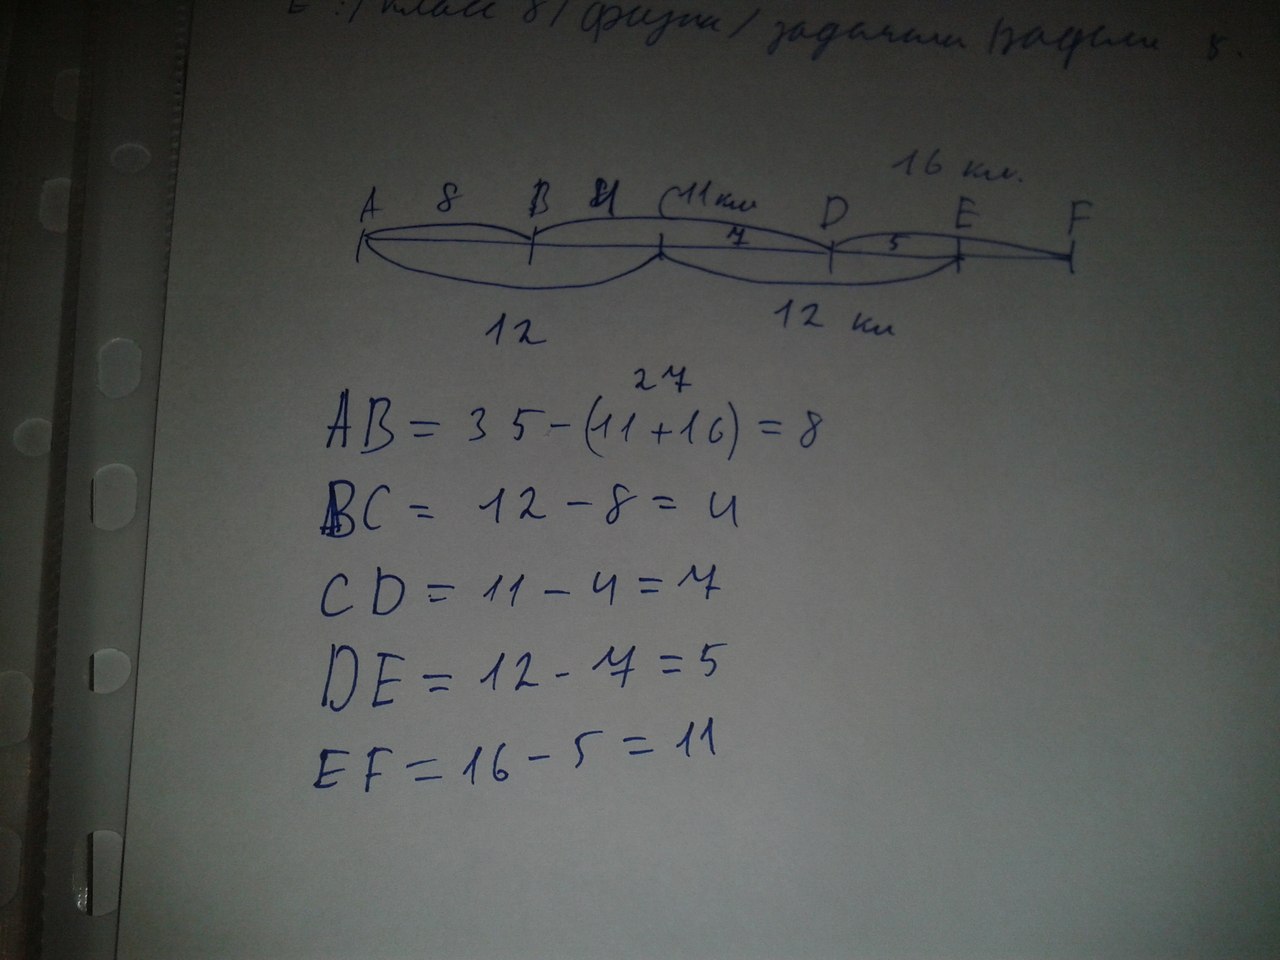 E:/ класс 8/ физика/ задачами
16 км.
A 8 B 4 C 11км D E F
7 5
12 12 км
27
AB = 35-(11+16) = 8
BC = 12-8= 4
CD = 11-4=7
DE = 12-7=5
EF = 16-5=11